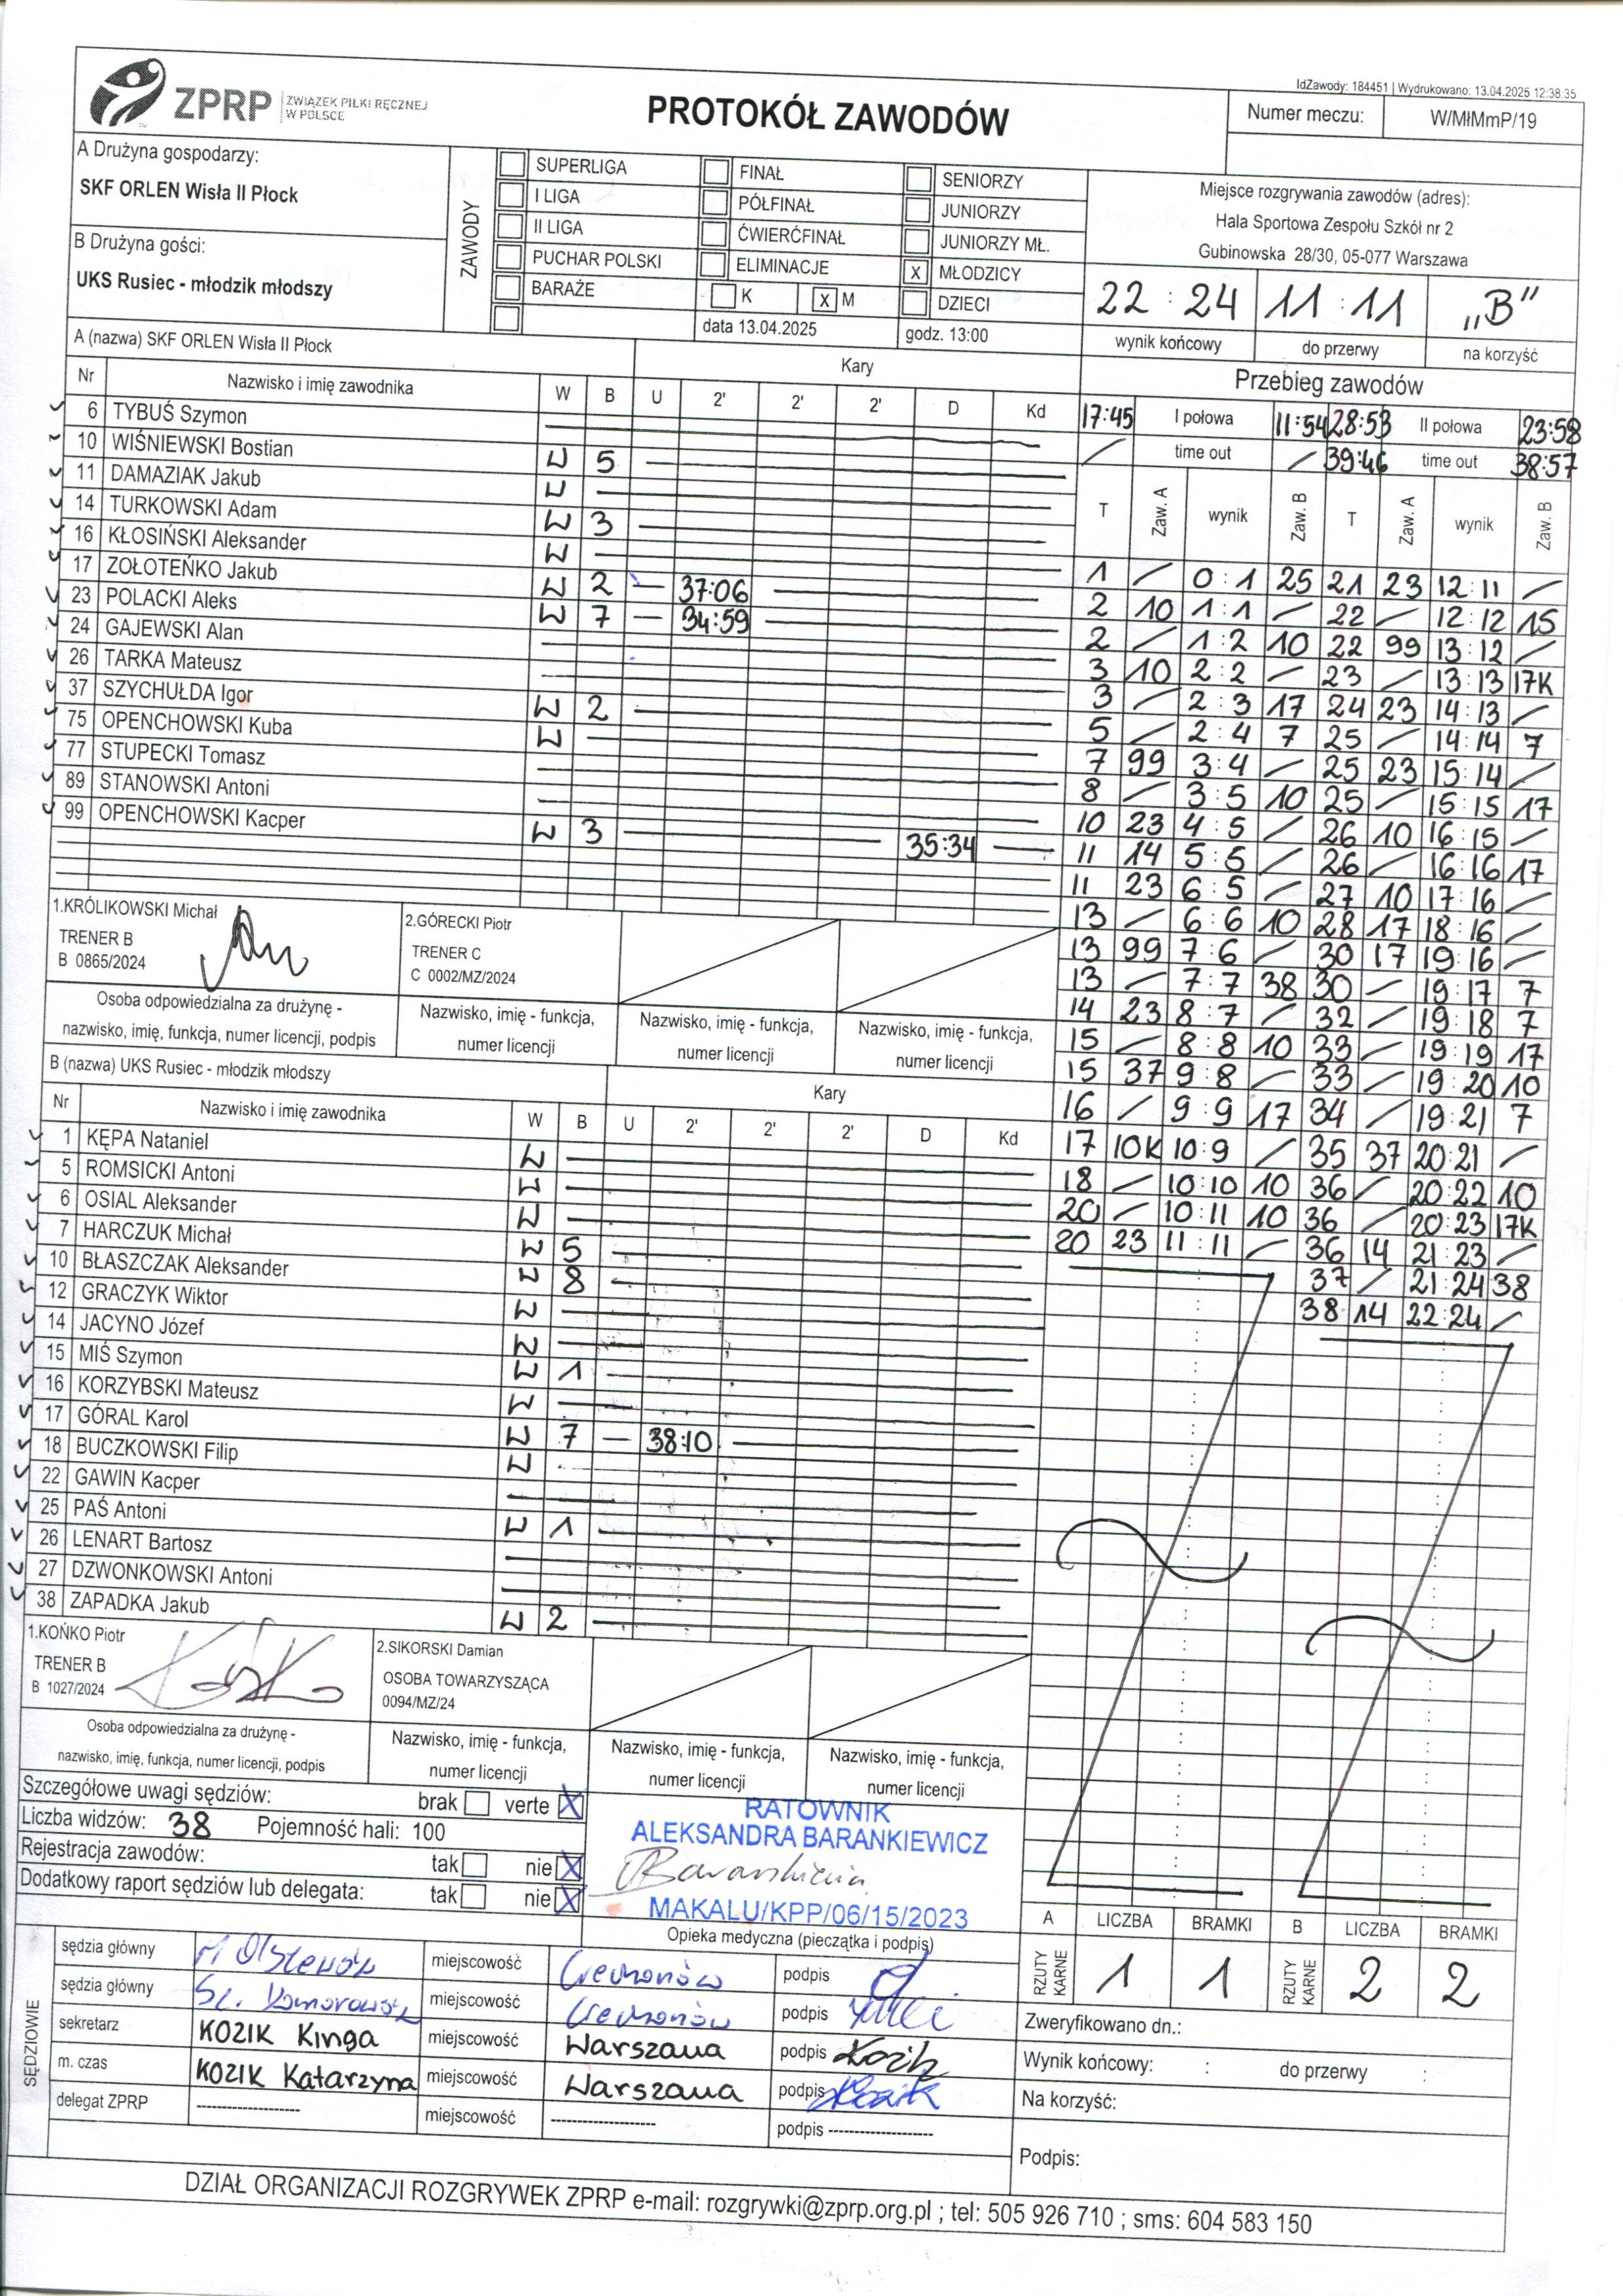 IdZawody: 184451 | Wydrukowano: 13.04.2025 12:38:35
ZPRP ZWIĄZEK PIŁKI RĘCZNEJ W POLSCE
PROTOKÓŁ ZAWODÓW
Numer meczu: W/MłMmP/19
A Drużyna gospodarzy:
SKF ORLEN Wisła II Płock
B Drużyna gości:
UKS Rusiec - młodzik młodszy
ZAWODY
SUPERLIGA FINAŁ SENIORZY
I LIGA PÓŁFINAŁ JUNIORZY
II LIGA ĆWIERĆFINAŁ JUNIORZY MŁ.
PUCHAR POLSKI ELIMINACJE X MŁODZICY
BARAŻE K X M DZIECI
data 13.04.2025 godz. 13:00
Miejsce rozgrywania zawodów (adres):
Hala Sportowa Zespołu Szkół nr 2
Gubinowska 28/30, 05-077 Warszawa
22 : 24 11 : 11 „B”
wynik końcowy do przerwy na korzyść
A (nazwa) SKF ORLEN Wisła II Płock Kary
Nr Nazwisko i imię zawodnika W B U 2' 2' 2' D Kd
6 TYBUŚ Szymon
10 WIŚNIEWSKI Bostian W 5
11 DAMAZIAK Jakub W
14 TURKOWSKI Adam W 3
16 KŁOSIŃSKI Aleksander W
17 ZOŁOTEŃKO Jakub W 2 — 37:06
23 POLACKI Aleks W 7 — 34:59
24 GAJEWSKI Alan
26 TARKA Mateusz
37 SZYCHUŁDA Igor W 2
75 OPENCHOWSKI Kuba W
77 STUPECKI Tomasz
89 STANOWSKI Antoni
99 OPENCHOWSKI Kacper W 3 35:34
1.KRÓLIKOWSKI Michał
TRENER B
B 0865/2024
2.GÓRECKI Piotr
TRENER C
C 0002/MZ/2024
Osoba odpowiedzialna za drużynę -
nazwisko, imię, funkcja, numer licencji, podpis
Nazwisko, imię - funkcja,
numer licencji
Nazwisko, imię - funkcja,
numer licencji
Nazwisko, imię - funkcja,
numer licencji
B (nazwa) UKS Rusiec - młodzik młodszy Kary
Nr Nazwisko i imię zawodnika W B U 2' 2' 2' D Kd
1 KĘPA Nataniel W
5 ROMSICKI Antoni W
6 OSIAL Aleksander W
7 HARCZUK Michał W 5
10 BŁASZCZAK Aleksander W 8
12 GRACZYK Wiktor W
14 JACYNO Józef W
15 MIŚ Szymon W 1
16 KORZYBSKI Mateusz W
17 GÓRAL Karol W 7 — 38:10
18 BUCZKOWSKI Filip W
22 GAWIN Kacper
25 PAŚ Antoni W 1
26 LENART Bartosz
27 DZWONKOWSKI Antoni
38 ZAPADKA Jakub W 2
1.KOŃKO Piotr
TRENER B
B 1027/2024
2.SIKORSKI Damian
OSOBA TOWARZYSZĄCA
0094/MZ/24
Osoba odpowiedzialna za drużynę -
nazwisko, imię, funkcja, numer licencji, podpis
Nazwisko, imię - funkcja,
numer licencji
Nazwisko, imię - funkcja,
numer licencji
Nazwisko, imię - funkcja,
numer licencji
Przebieg zawodów
17:45 I połowa 11:54 28:53 II połowa 23:58
/ time out / 39:46 time out 38:57
T Zaw. A wynik Zaw. B T Zaw. A wynik Zaw. B
1 / 0:1 25 21 23 12:11 /
2 10 1:1 / 22 / 12:12 15
2 / 1:2 10 22 99 13:12 /
3 10 2:2 / 23 / 13:13 17K
3 / 2:3 17 24 23 14:13 /
5 / 2:4 7 25 / 14:14 7
7 99 3:4 / 25 23 15:14 /
8 / 3:5 10 25 / 15:15 17
10 23 4:5 / 26 10 16:15 /
11 14 5:5 / 26 / 16:16 17
11 23 6:5 / 27 10 17:16 /
13 / 6:6 10 28 17 18:16 /
13 99 7:6 / 30 17 19:16 /
13 / 7:7 38 30 / 19:17 7
14 23 8:7 / 32 / 19:18 7
15 / 8:8 10 33 / 19:19 17
15 37 9:8 / 33 / 19:20 10
16 / 9:9 17 34 / 19:21 7
17 10K 10:9 / 35 37 20:21 /
18 / 10:10 10 36 / 20:22 10
20 / 10:11 10 36 / 20:23 17K
20 23 11:11 / 36 14 21:23 /
37 / 21:24 38
38 14 22:24 /
Szczegółowe uwagi sędziów: brak verte X
Liczba widzów: 38 Pojemność hali: 100
Rejestracja zawodów: tak nie X
Dodatkowy raport sędziów lub delegata: tak nie X
RATOWNIK
ALEKSANDRA BARANKIEWICZ
MAKALU/KPP/06/15/2023
Opieka medyczna (pieczątka i podpis)
A LICZBA BRAMKI B LICZBA BRAMKI
RZUTY KARNE 1 1 RZUTY KARNE 2 2
SĘDZIOWIE
sędzia główny miejscowość podpis
sędzia główny miejscowość podpis
sekretarz KOZIK Kinga miejscowość Warszawa podpis Kozik
m. czas KOZIK Katarzyna miejscowość Warszawa podpis Kozik
delegat ZPRP ------------------- miejscowość ------------------- podpis -------------------
Zweryfikowano dn.:
Wynik końcowy: : do przerwy :
Na korzyść:
Podpis:
DZIAŁ ORGANIZACJI ROZGRYWEK ZPRP e-mail: rozgrywki@zprp.org.pl ; tel: 505 926 710 ; sms: 604 583 150